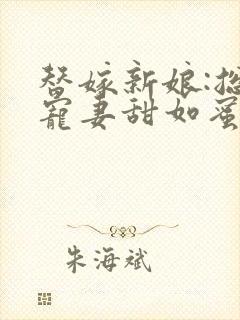 替嫁新娘:总
宠妻甜如蜜
朱海斌